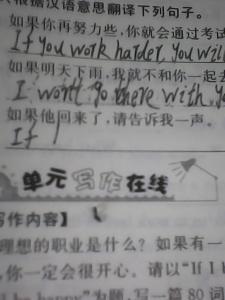 根据汉语意思翻译下列句子。
如果你再努力些,你就会通过考试
If you work harder, you will
如果明天下雨,我就不和你一起去
I won't go there with
如果他回来了,请告诉我一声。
If
单元写作在线
写作内容】
理想的职业是什么?如果有一
,你一定会很开心。请以"If I b
be happy"为题,写一篇 80 词